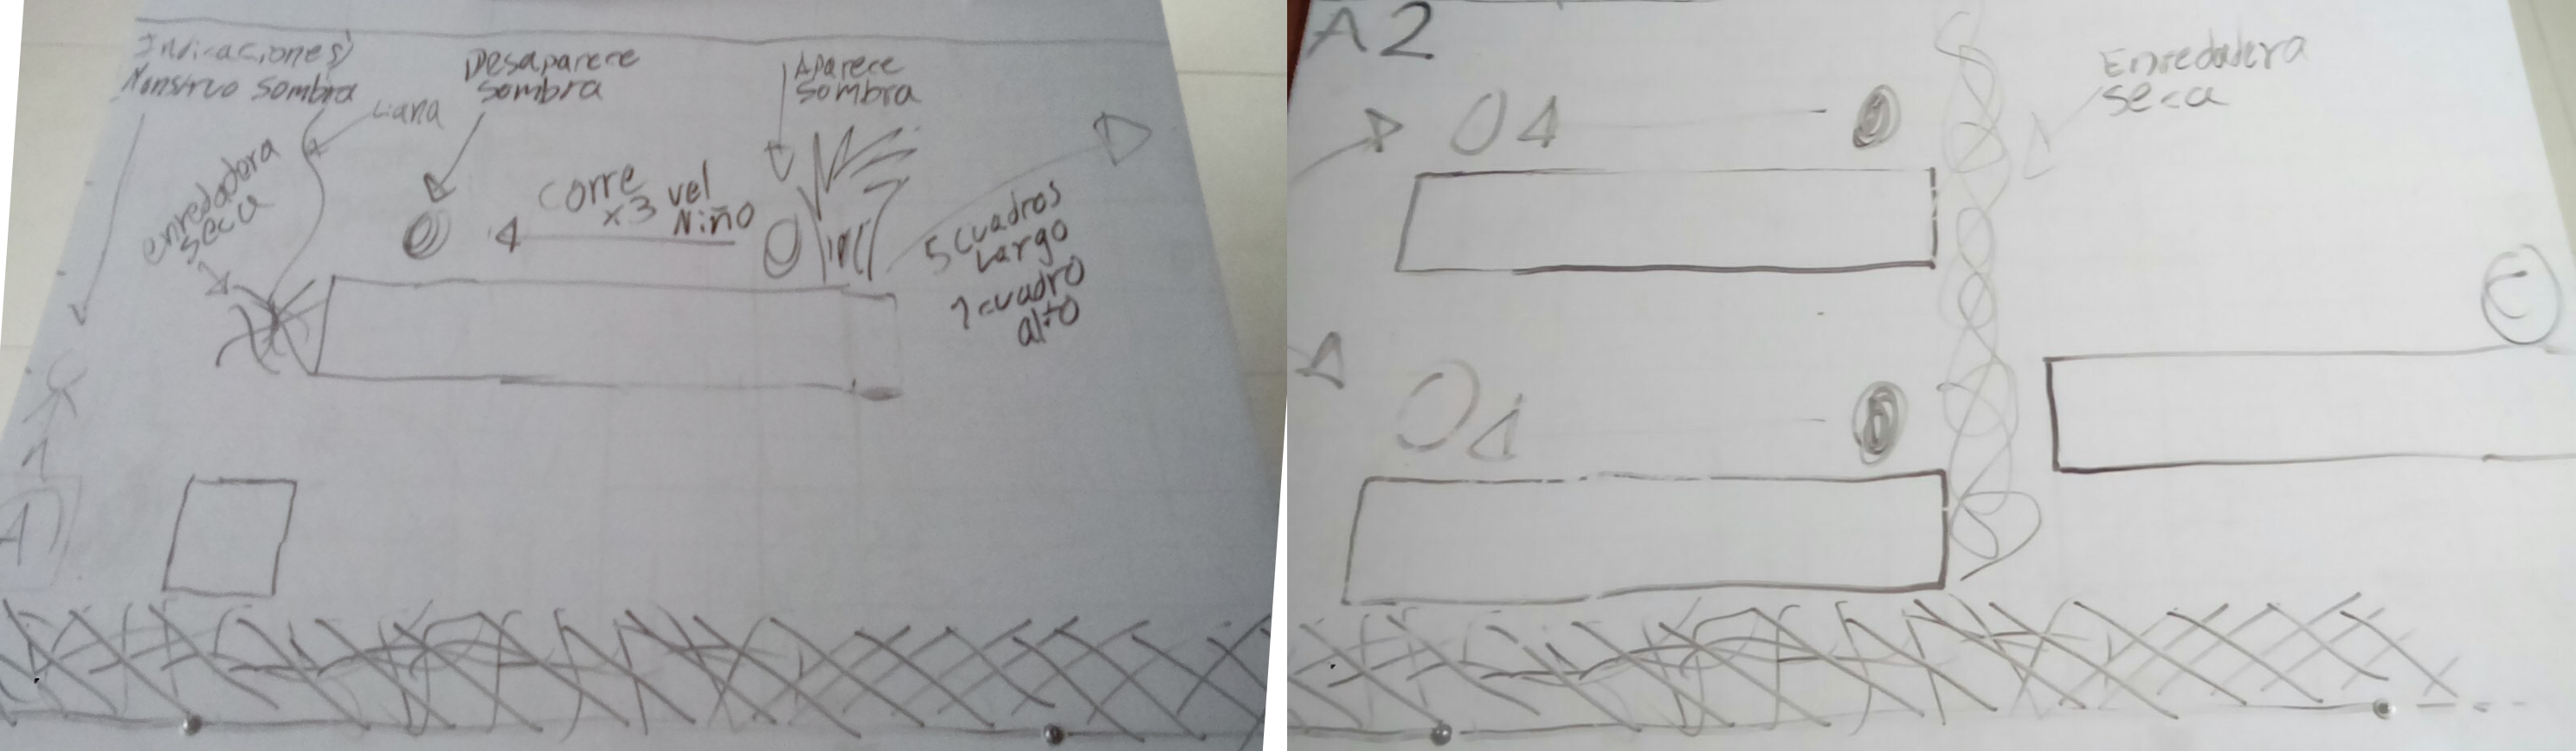 Indicaciones)
Monstruo Sombra
Liana
enredadera
seca
Desaparece
Sombra
Aparece
Sombra
corre
x3 vel
Niño
5 cuadros
Largo
1 cuadro
alto
A)
A2
Enredadera
seca